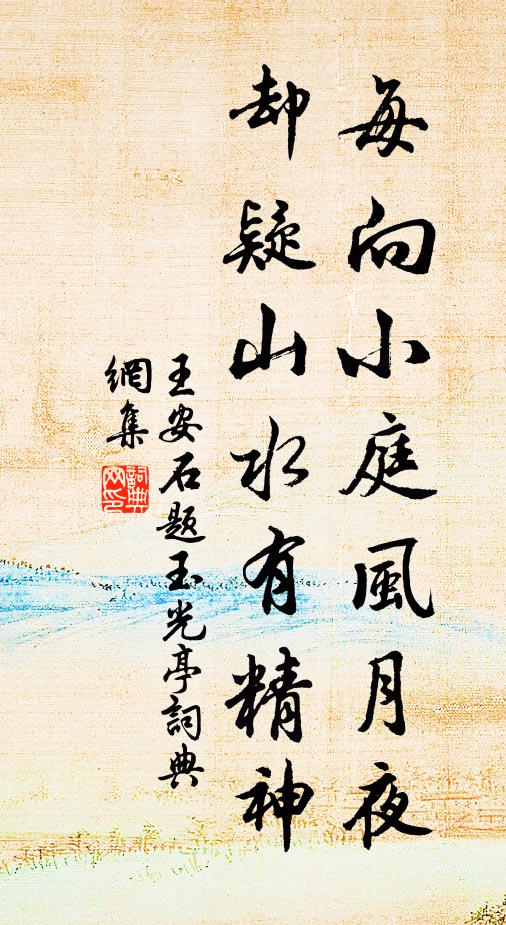 每向小庭風月夜
却疑山水有精神
王安石題玉光亭詞典
網集
詞典
网印